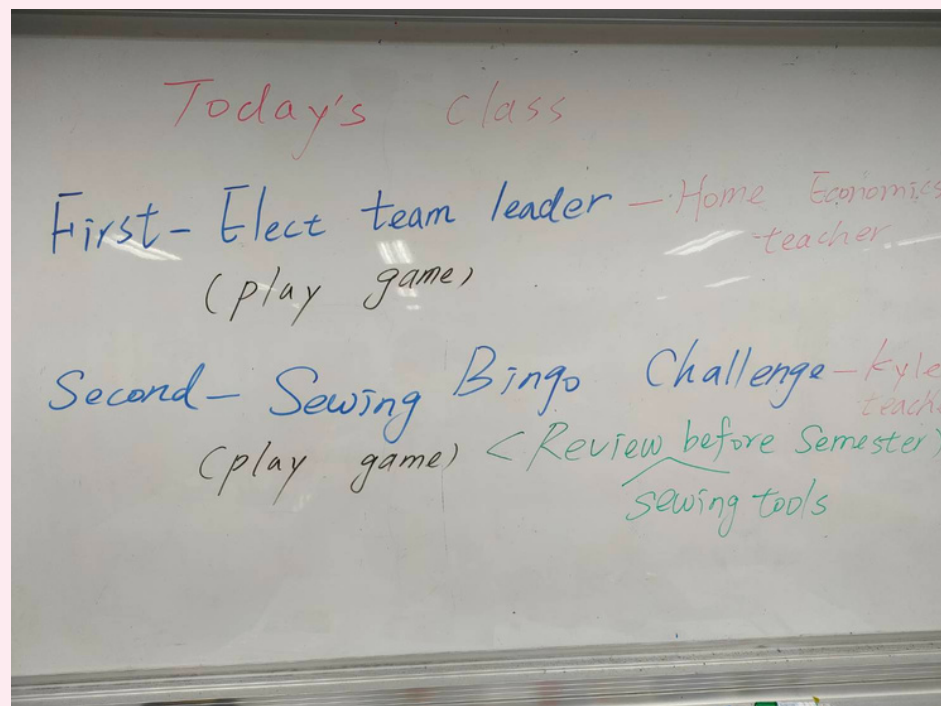 Today's class
First - Elect team leader - Home Economics
teacher
(play game)
Second - Sewing Bingo Challenge - Kyle
(play game) <Review before Semester>
sewing tools